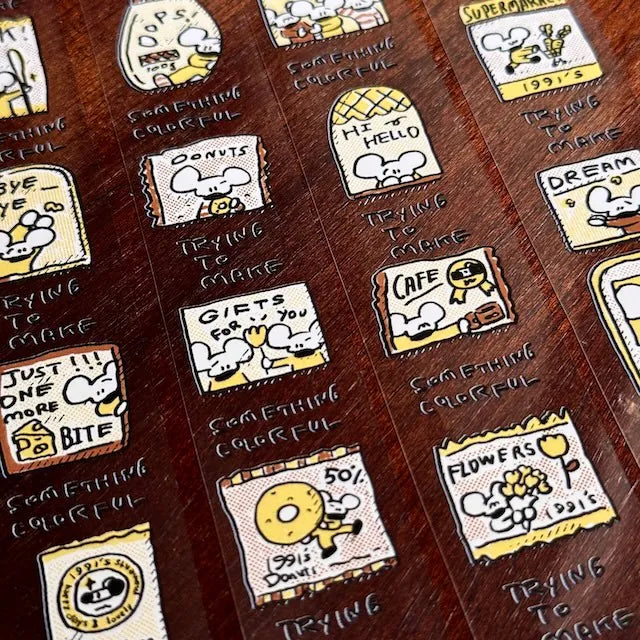 OPS!
SOMETHING
COLORFUL
SOMETHING
COLORFUL
SUPERMARKET
1991's
TRYING
TO
MAKE
DONUTS
TRYING
TO
MAKE
HI
HELLO
TRYING
TO
MAKE
DREAM
BYE
YE
TRYING
TO
MAKE
GIFTS
FOR YOU
SOMETHING
COLORFUL
CAFE
SOMETHING
COLORFUL
JUST !!!
ONE
MORE
BITE
SOMETHING
COLORFUL
50%
1991's
DONUT
TRYING
FLOWERS
1991's
TRYING
TO
MAKE
1991's